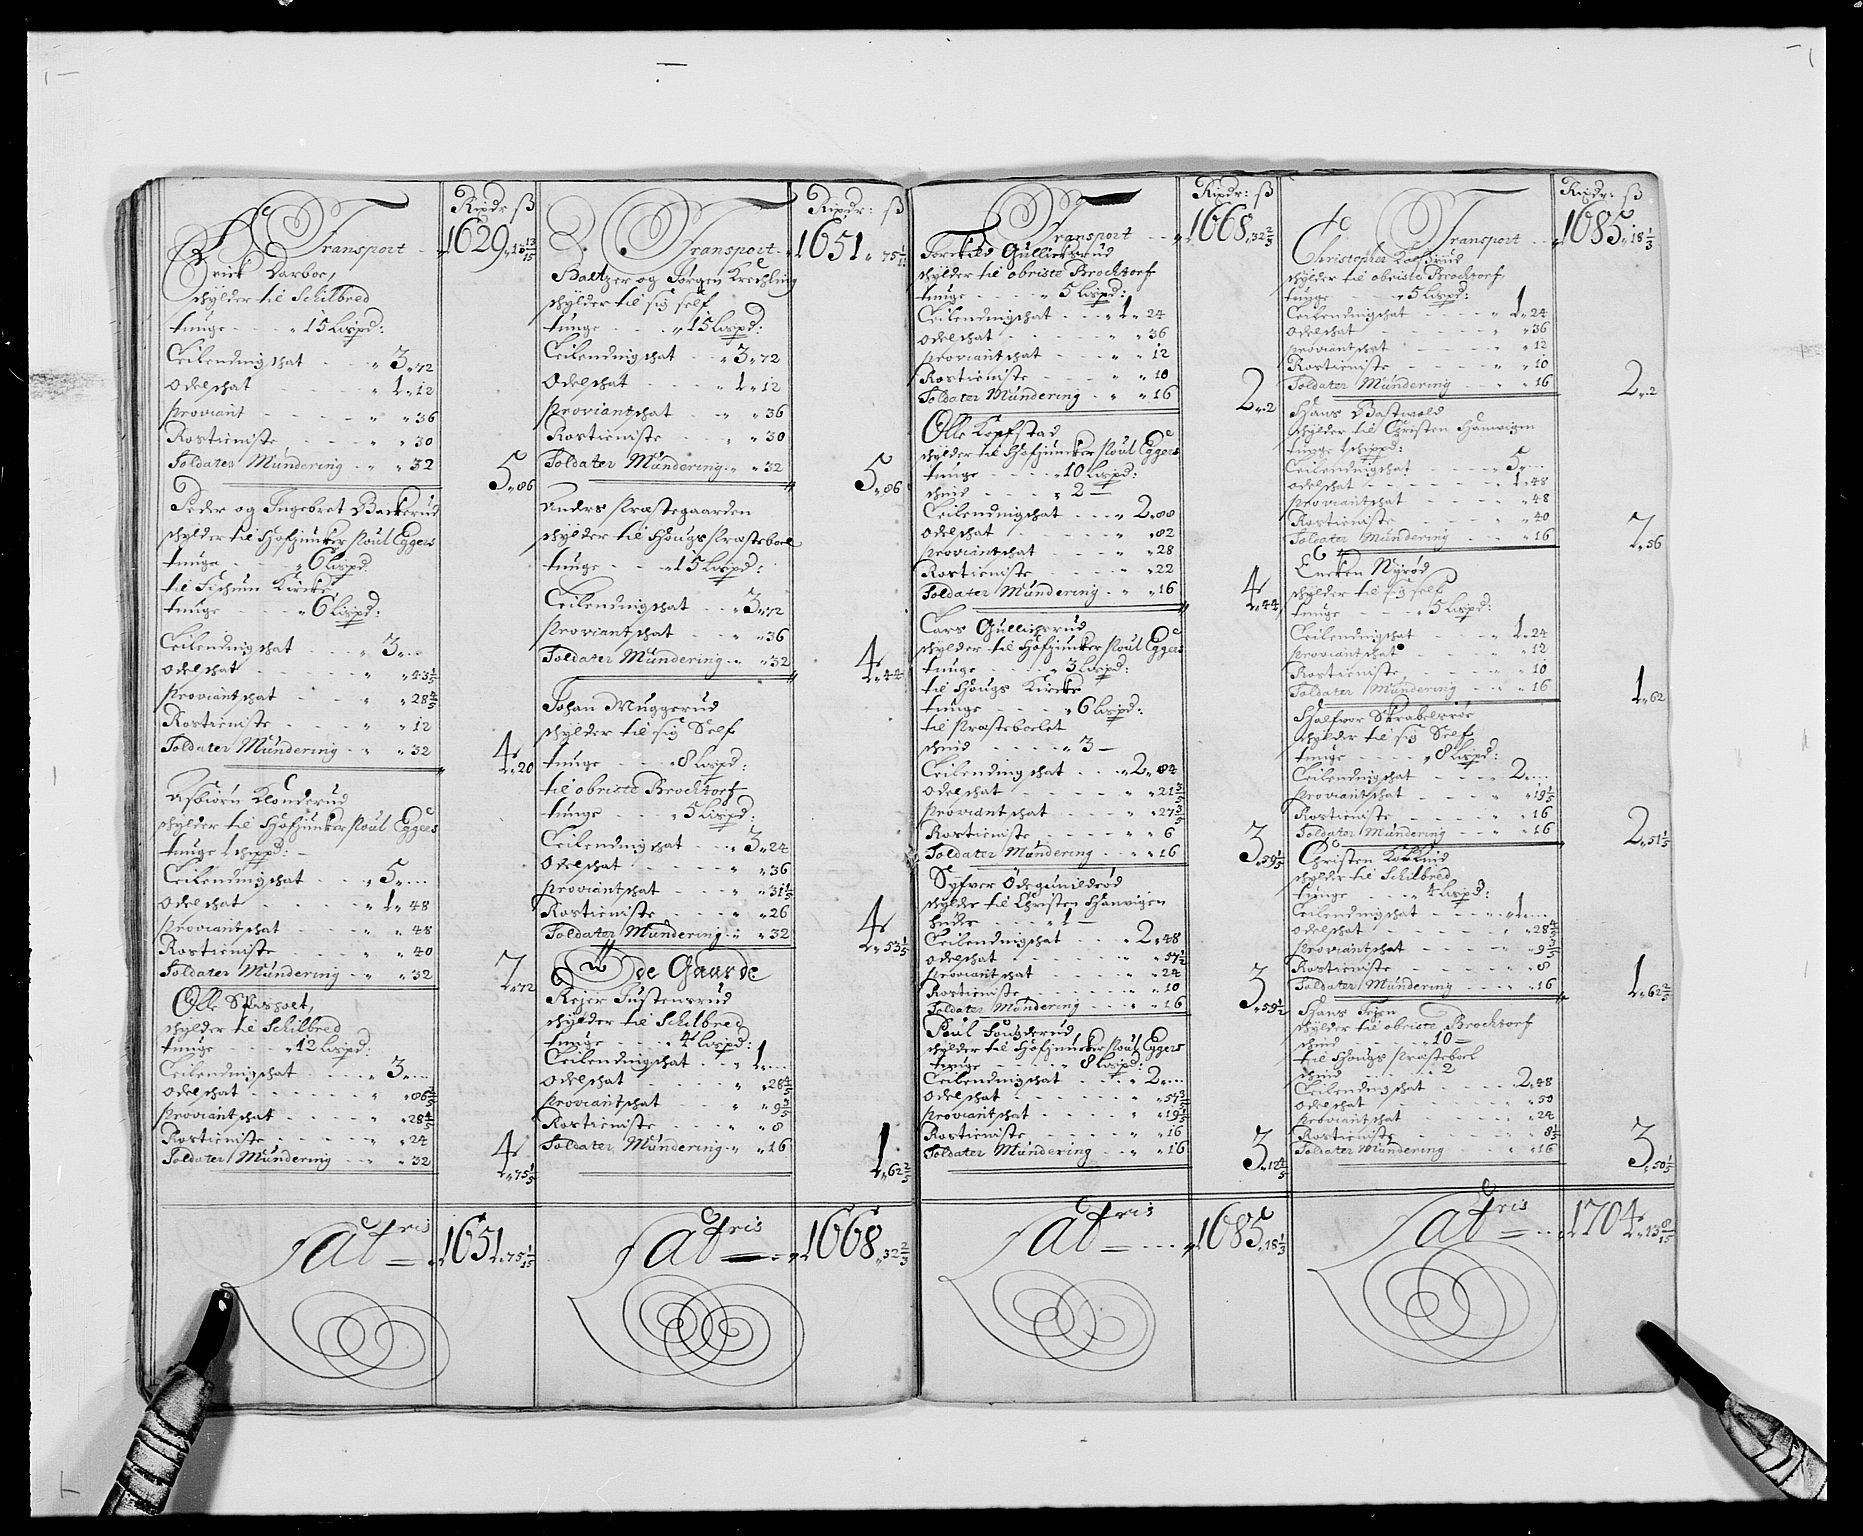 Transport - - Rixdr ß 1629
Erick Darboe,
schylder til Schilbred
tunge - - - 15 Lispd:
Leilendingschat - - 3 „ 72
Odelschat - - - 1 „ 12
Proviant - - - „ 36
Rostieniste - - - „ 30
Soldater Mundering - „ 32
5 „ 86
Peder og Ingebret Backerud
schylder til Hofjuncker Poul Eggers
tunge - - - 6 Lispd:
til Kircke
tunge - - - 6 Lispd:
Leilendingschat - - 3 „ ...
Odelschat - - - „ 43 1/5
Proviantschat - - „ 28 4/5
Rostieniste - - - „ 12
Soldater Mundering - „ 32
4 „ 20
Asbiørn Klonderud
schylder til Hofjuncker Poul Eggers
tunge 1 schippd: -
Leilendingschat - - 5 „ ...
Odelschat - - - 1 „ 48
Proviantschat - - „ 48
Rostieniste - - - „ 40
Soldater Mundering - „ 32
7 „ 72
Olle
schylder til Schilbred
tunge - - - 12 Lispd:
Leilendingschat - - 3 „ ...
Odelschat - - - „ 86 2/5
Proviantschat - - „ 28 4/5
Rostieniste - - - „ 24
Soldater Mundering - „ 32
4 „ 75 1/5
Latris = 1651 „ 75 1/15
Transport - Rixdr: ß 1651 „ 75 1/15
Baltzer og Jørgen Krechling
schylder til sig self
tunge - - - 15 Lispd:
Leilendingschat - - 3 „ 72
Odelschat - - - 1 „ 12
Proviantschat - - „ 36
Rostieniste - - - „ 30
Soldater Mundering - „ 32
5 „ 86
Anders Præstegaarden
schylder til Hougs Præsteboel
tunge - - - 15 Lispd:
Leilendingschat - - 3 „ 72
Proviantschat - - „ 36
Soldater Mundering - „ 32
4 „ 44
Johan Muggerud
schylder til sig Self
tunge - - - 8 Lispd:
til obriste Brochtorf
tunge - - - 5 Lispd:
Leilendingschat - - 3 „ 24
Odelschat - - - „ 36
Proviantschat - - „ 31 1/5
Rostieniste - - - „ 26
Soldater Mundering - „ 32
4 „ 53 1/5
Øde Gaarde
Rejer Justensrud
schylder til Schilbred
tunge - - - 4 Lispd:
Leilendingschat - - 1 „ ...
Odelschat - - - „ 28 4/5
Proviantschat - - „ 9 3/5
Rostieniste - - - „ 8
Soldater Mundering - „ 16
1 „ 62 2/5
Latris = 1668 „ 32 2/3
Transport - Rixdr: ß 1668 „ 32 2/3
Torckild Gullichsrud
schylder til obriste Brochtorf
tunge - - - 5 Lispd:
Leilendingschat - - 1 „ 24
Odelschat - - - „ 36
Proviantschat - - „ 12
Rostieniste - - - „ 10
Soldater Mundering - „ 16
2 „ 2
Olle Kopfstad
schylder til Hofjuncker Poul Eggers
tunge - - - 10 Lispd:
schind - - - 2 —
Leilendingschat - - 2 „ 88
Odelschat - - - „ 82
Proviantschat - - „ 28
Rostieniste - - - „ 22
Soldater Mundering - „ 16
4 „ 44
Lars Gullichsrud
schylder til Hofjuncker Poul Eggers
tunge - - - 3 Lispd:
til Hougs Kircke
tunge - - - 6 Lispd:
til Præsteboelet
schind - - - 3 —
Leilendingschat - - 2 „ 84
Odelschat - - - „ 21 3/5
Proviantschat - - „ 27 3/5
Rostieniste - - - „ 6
Soldater Mundering - „ 16
3 „ 59 1/5
Syfver Ødegunildrød
schylder til Christen Hanwigen
huder - - - 1 —
Leilendingschat - - 2 „ 48
Odelschat - - - „ 57 1/2
Proviantschat - - „ 24
Rostieniste - - - „ 10
Soldater Mundering - „ 16
3 „ 59 1/2
Poul
schylder til Hofjuncker Poul Eggers
tunge - - - 8 Lispd:
Leilendingschat - - 2 „ ...
Odelschat - - - „ 57 3/5
Proviantschat - - „ 19 1/5
Rostieniste - - - „ 16
Soldater Mundering - „ 16
3 „ 12 4/5
Latris = - - - 1685 „ 18 1/3
Transport - - Rixdr: ß 1685 „ 18 1/3
Christopher
schylder til obriste Brochtorf
tunge - - - 5 Lispd:
Leilendingschat - - 1 „ 24
Odelschat - - - „ 36
Proviantschat - - „ 12
Rostieniste - - - „ 10
Soldater Mundering - „ 16
2 „ 2
Hans Bastwold
schylder til Christen Hanwigen
tunge 1 schippd:
Leilendingschat - - 5 „ ...
Odelschat - - - 1 „ 48
Proviantschat - - „ 48
Rostieniste - - - „ 40
Soldater Mundering - „ 16
7 „ 56
Encken Nyrød
schylder til sig self
tunge - - - 5 Lispd:
Leilendingschat - - 1 „ 24
Proviantschat - - „ 12
Rostieniste - - - „ 10
Soldater Mundering - „ 16
1 „ 62
Halfvor
schylder til sig Self
tunge - - - 8 Lispd:
Leilendingschat - - 2 „ ...
Proviantschat - - „ 19 1/5
Rostieniste - - - „ 16
Soldater Mundering - „ 16
2 „ 51 1/5
Christen
schylder til Schilbred
tunge - - - 4 Lispd:
Leilendingschat - - 1 „ ...
Odelschat - - - „ 28 4/5
Proviantschat - - „ 9 3/5
Rostieniste - - - „ 8
Soldater Mundering - „ 16
1 „ 62 2/5
Hans Teyen
schylder til obriste Brochtorf
schind - - - 10 —
til Hougs Præsteboel
schind - - - 2
Leilendingschat - - 2 „ 48
Odelschat - - - „ 50
Proviantschat - - „ 24
Rostieniste - - - „ 8 1/5
Soldater Mundering - „ 16
3 „ 50 1/5
Latris = - - 1704 „ 13 8/15